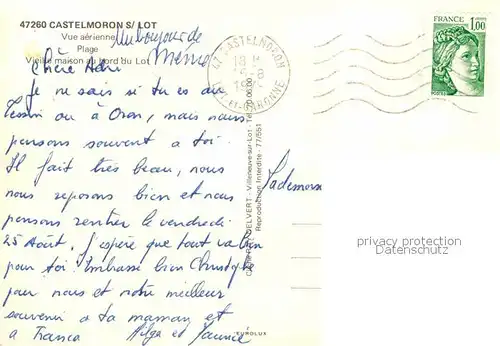 47260 CASTELMORON S/ LOT
Vue aérienne
Plage
Vieille maison au bord du Lot
Un bonjour de
Mémé
Chère Adri
Je ne sais si tu es au
ou à Oran, mais nous
pensons souvent à toi.
Il fait très beau, nous
nous reposons bien et nous
pensons rentrer le vendredi
25 Août. J'espère que tout va bien
pour toi. Embrasse bien Christophe
pour nous et notre meilleur
souvenir à ta maman et
à Franca
Helga et Maurice
47 CASTELMORON
18 H
LOT-ET-GARONNE
FRANCE
1,00
POSTES
Mademois
DELVERT - Villeneuve-sur-Lot - Tél.
Reproduction Interdite - 77/551
EUROLUX
privacy protection
Datenschutz